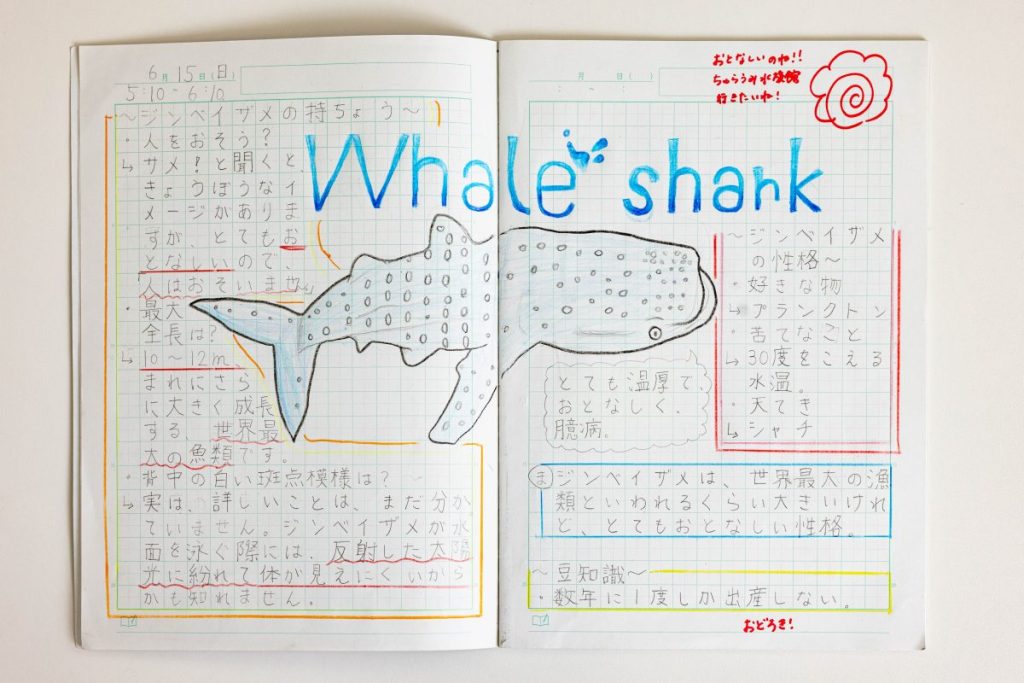 6月15日(日)
5:10~6:10
~ジンベイザメの持ちょう~
・人をおそう?
↳サメ!と聞くと、
きょうぼうなイ
メージがありま
すが、とてもお
となしいので、
人はおそいません。
・最大
全長は?
↳10~12m、
まれにさら
に大きく成長
する、世界最
大の魚類です。
・背中の白い斑点模様は?
↳実は、詳しいことは、まだ分か
ていません。ジンベイザメが水
面を泳ぐ際には、反射した太陽
光に紛れて体が見えにくいから
かも知れません。
Whale shark
月 日( )
: ~ :
おとなしいのね!!
ちゅらうみ水族館
行きたいね!
~ジンベイザメ
の性格~
・好きな物
↳プランクトン
・苦てなこと
↳30度をこえる
水温。
・天てき
↳シャチ
とても温厚で、
おとなしく、
臆病。
ま ジンベイザメは、世界最大の漁
類といわれるくらい大きいけれ
ど、とてもおとなしい性格。
~豆知識~
・数年に1度しか出産しない。
おどろき!